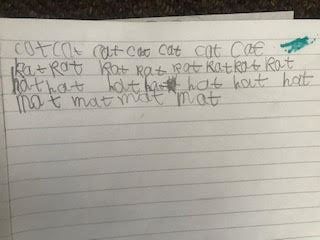 cat cat cat cat cat cat cat
Rat Rat Rat Rat Rat Rat Rat Rat
hat hat hat hat hat hat hat
mat mat mat mat